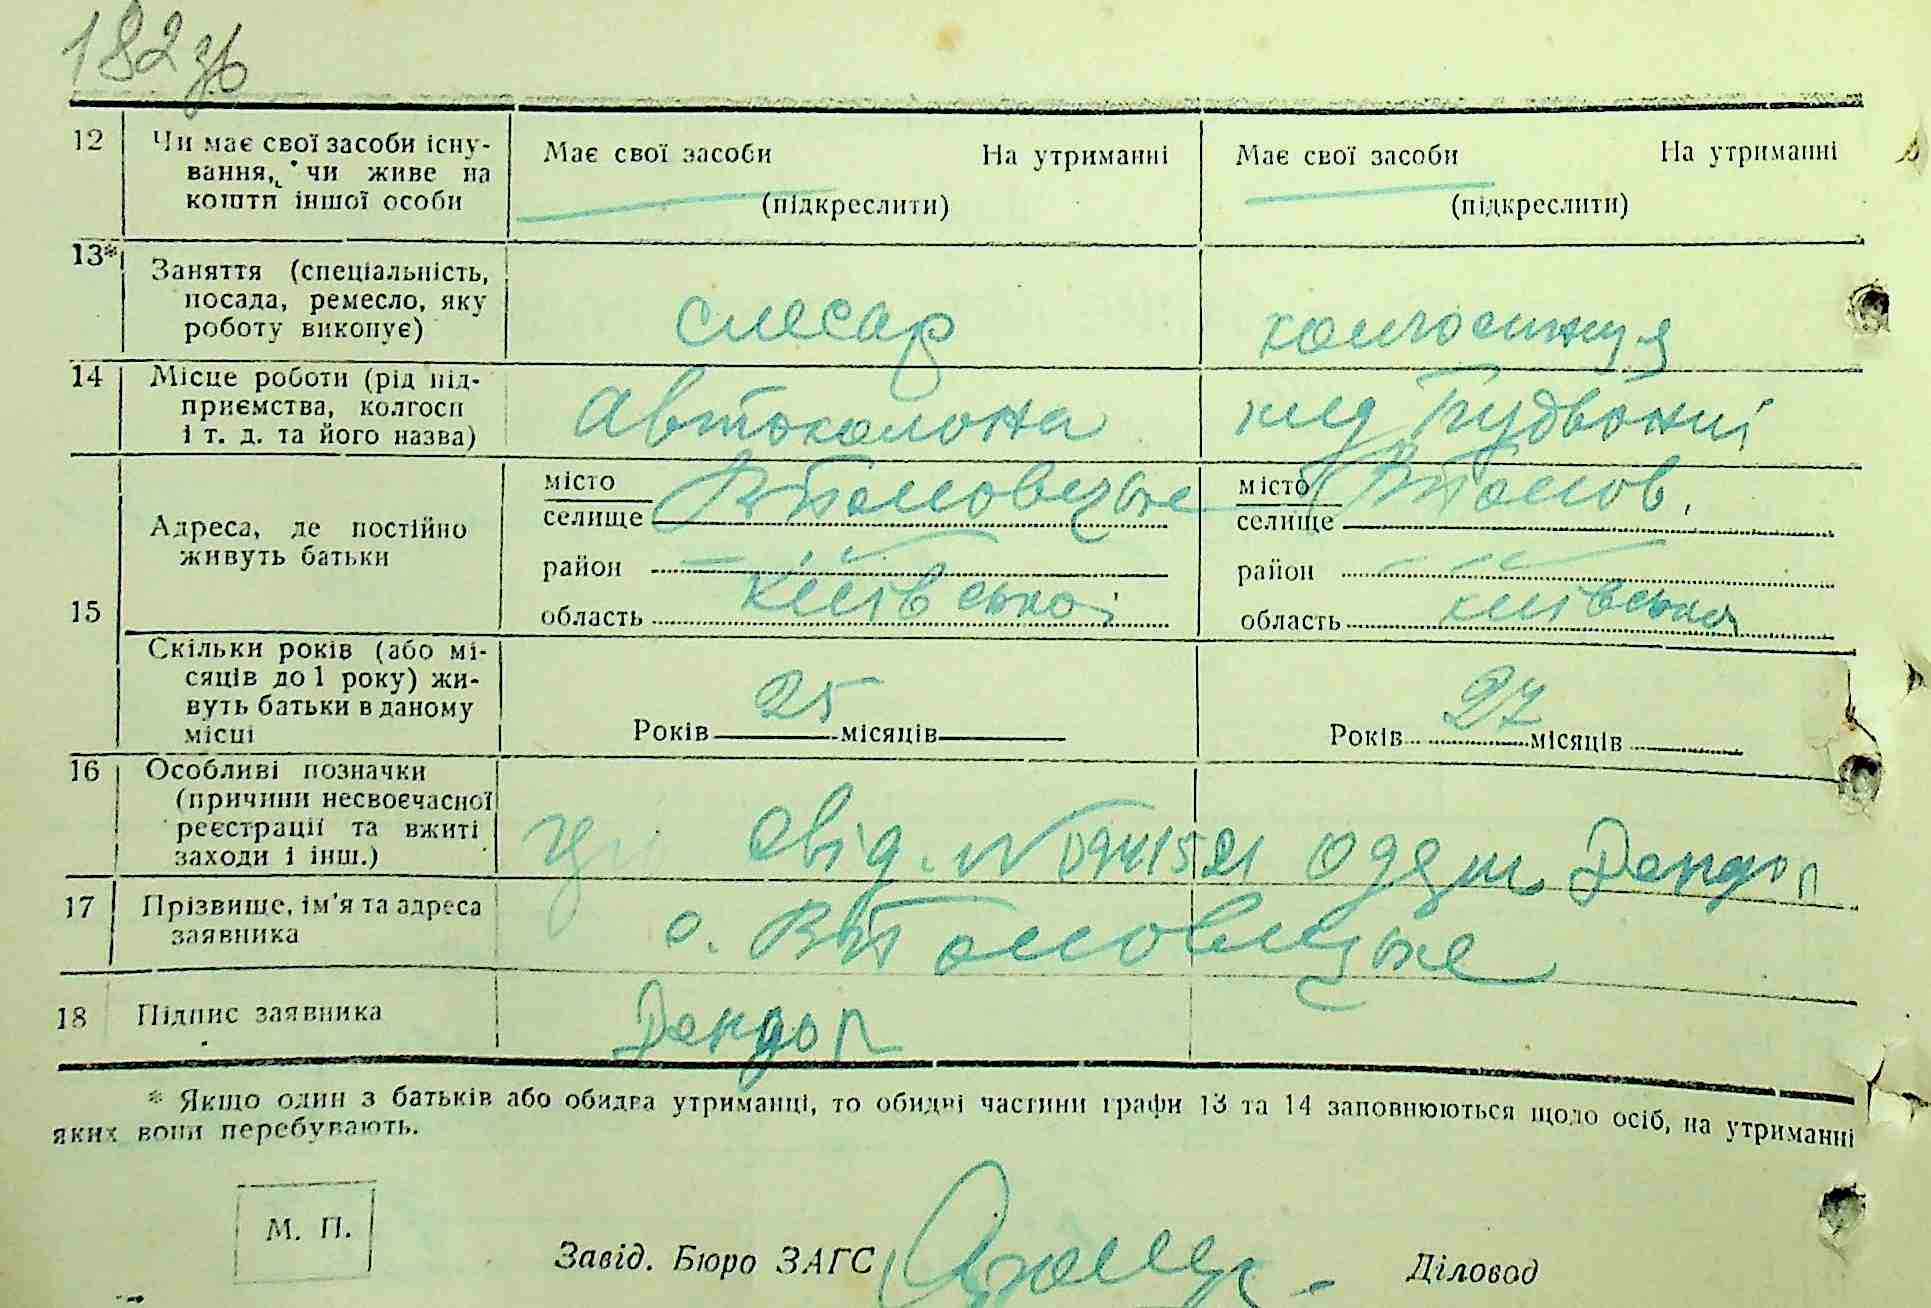 182 зв
12 Чи має свої засоби існу-
вання, чи живе на
кошти іншої особи
Має свої засоби На утриманні
(підкреслити)
Має свої засоби На утриманні
(підкреслити)
13* Заняття (спеціальність,
посада, ремесло, яку
роботу виконує)
слесар
колгоспниця
14 Місце роботи (рід під-
приємства, колгосп
і т. д. та його назва)
Автоколона
15 Адреса, де постійно
живуть батьки
місто
селище
район
область Київської
місто
селище
район
область Київська
Скільки років (або мі-
сяців до 1 року) жи-
вуть батьки в даному
місці
Років 25 місяців
Років 27 місяців
16 Особливі позначки
(причини несвоєчасної
реєстрації та вжиті
заходи і інш.)
свід. №
17 Прізвище, ім'я та адреса
заявника
с.
18 Підпис заявника
* Якщо один з батьків або обидва утриманці, то обидві частини графи 13 та 14 заповнюються щодо осіб, на утриманні
яких вони перебувають.
М. П.
Завід. Бюро ЗАГС
Діловод